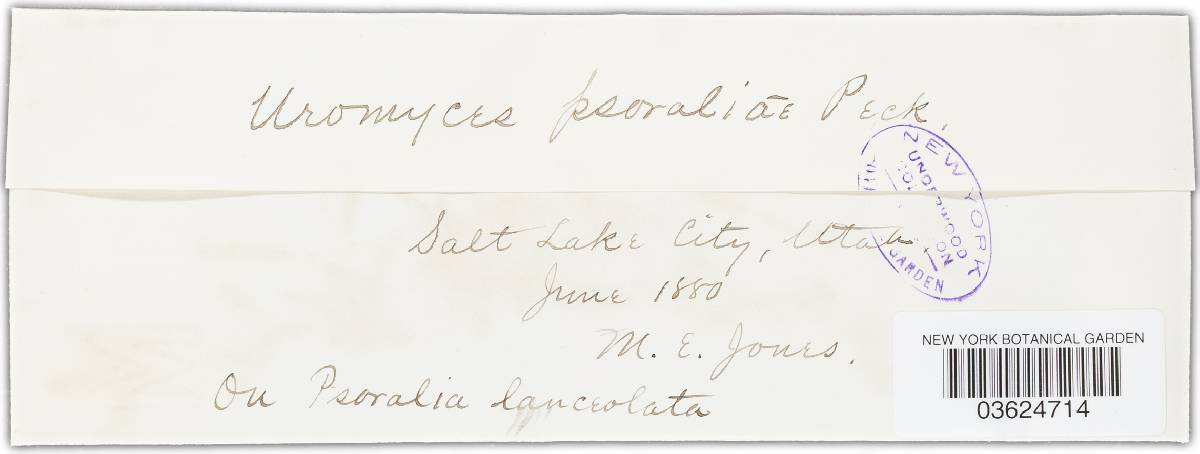 Uromyces psoraliae Peck.
NEW YORK
UNDERWOOD
GARDEN
Salt Lake City, Utah.
June 1880
M. E. Jones.
On Psoralia lanceolata
NEW YORK BOTANICAL GARDEN
03624714